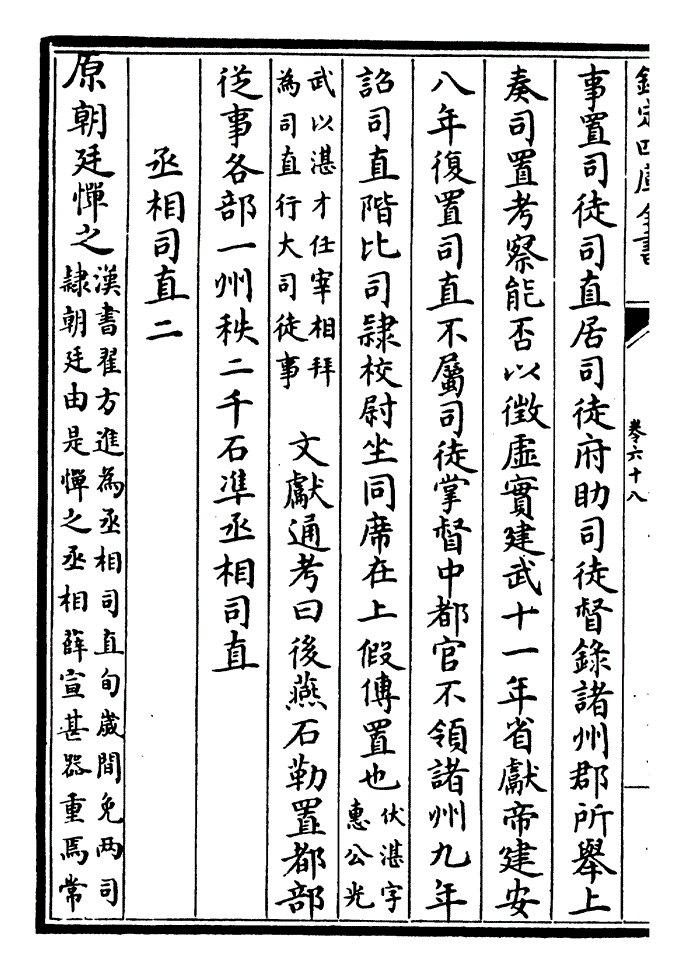 欽定四庫全書
卷六十八
事置司徒司直居司徒府助司徒督錄諸州郡所舉上
奏司置考察能否以徵虛實建武十一年省獻帝建安
八年復置司直不屬司徒掌督中都官不領諸州九年
詔司直階比司隸校尉坐同席在上假傳置也伏湛字
惠公光
武以湛才任宰相拜
為司直行大司徒事 文獻通考曰後燕石勒置都部
從事各部一州秩二千石準丞相司直
丞相司直二
原朝廷憚之漢書翟方進為丞相司直旬歲間免兩司
隸朝廷由是憚之丞相薛宣甚器重焉常